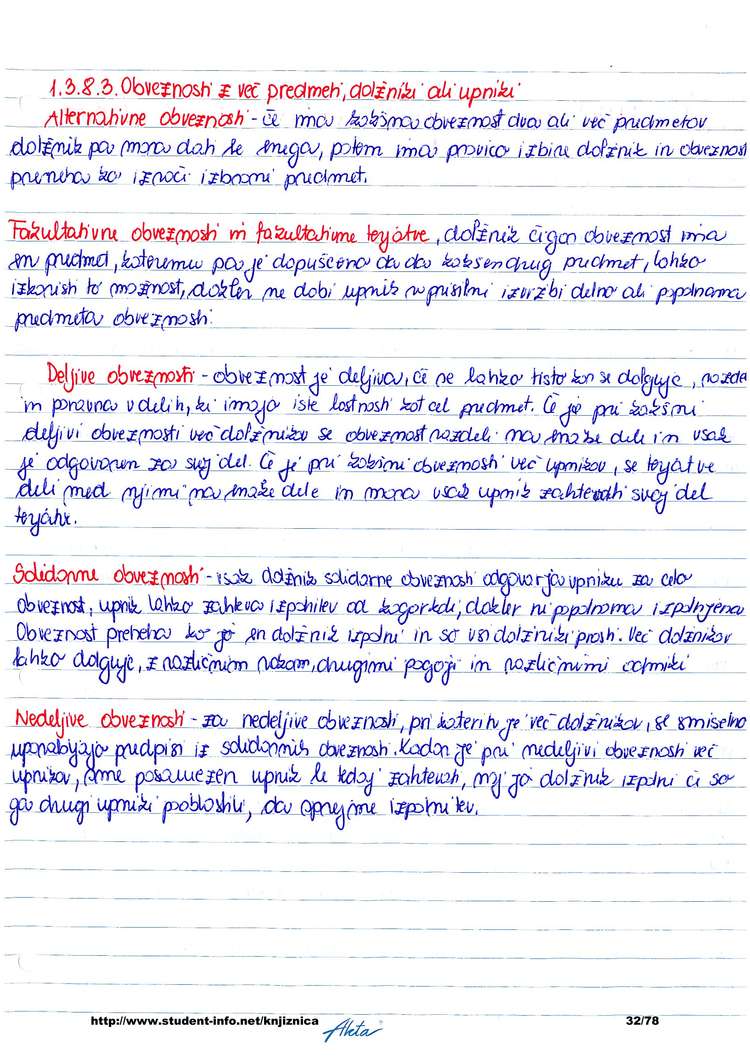 1.3.8.3. Obveznosti z več predmeti, dolžniki ali upniki
Alternativne obveznosti - če ima kakšna obveznost dva ali več predmetov
dolžnik pa mora dati le enega, potem ima pravico izbire dolžnik in obveznost
preneha ko izroči izbrani predmet.
Fakultativne obveznosti in fakultativne terjatve, dolžnik čigar obveznost ima
en predmet, kateremu pa je dopuščeno da da kakšen drug predmet, lahko
izkoristi to možnost, dokler ne dobi upnik v prisilni izvržbi delno ali popolnama
predmeta obveznosti.
Deljive obveznosti - obveznost je deljiva, če se lahko tisto kar se dolguje, razdeli
in poravna v delih, ki imajo iste lastnosti kot cel predmet. Če je pri kakšni
deljivi obveznosti več dolžnikov se obveznost razdeli na enake dele in vsak
je odgovoren za svoj del. Če je pri kakšni obveznosti več upnikov, se terjatve
deli med njimi na enake dele in mora vsak upnik zahtevati svoj del
terjatve.
Solidarne obveznosti - vsak dolžnik solidarne obveznosti odgovarja upniku za celo
obveznost, upnik lahko zahteva izpolnitev od kogarkoli, dokler ni popolnoma izpolnjena
Obveznost preneha ko jo en dolžnik izpolni in so vsi dolžniki prosti. Več dolžnikov
lahko dolguje, z različnim rokom, drugimi pogoji in različnimi odmiki
Nedeljive obveznosti - za nedeljive obveznosti, pri katerih je več dolžnikov, se smiselno
uporabljajo predpisi iz solidarnih obveznosti. Kadar je pri nedeljivi obveznosti več
upnikov, sme posamezen upnik le tedaj zahtevati, naj jo dolžnik izpolni če so
ga drugi upniki pooblastili, da sprejme izpolnitev.
http://www.student-info.net/knjiznica
Akta
32/78